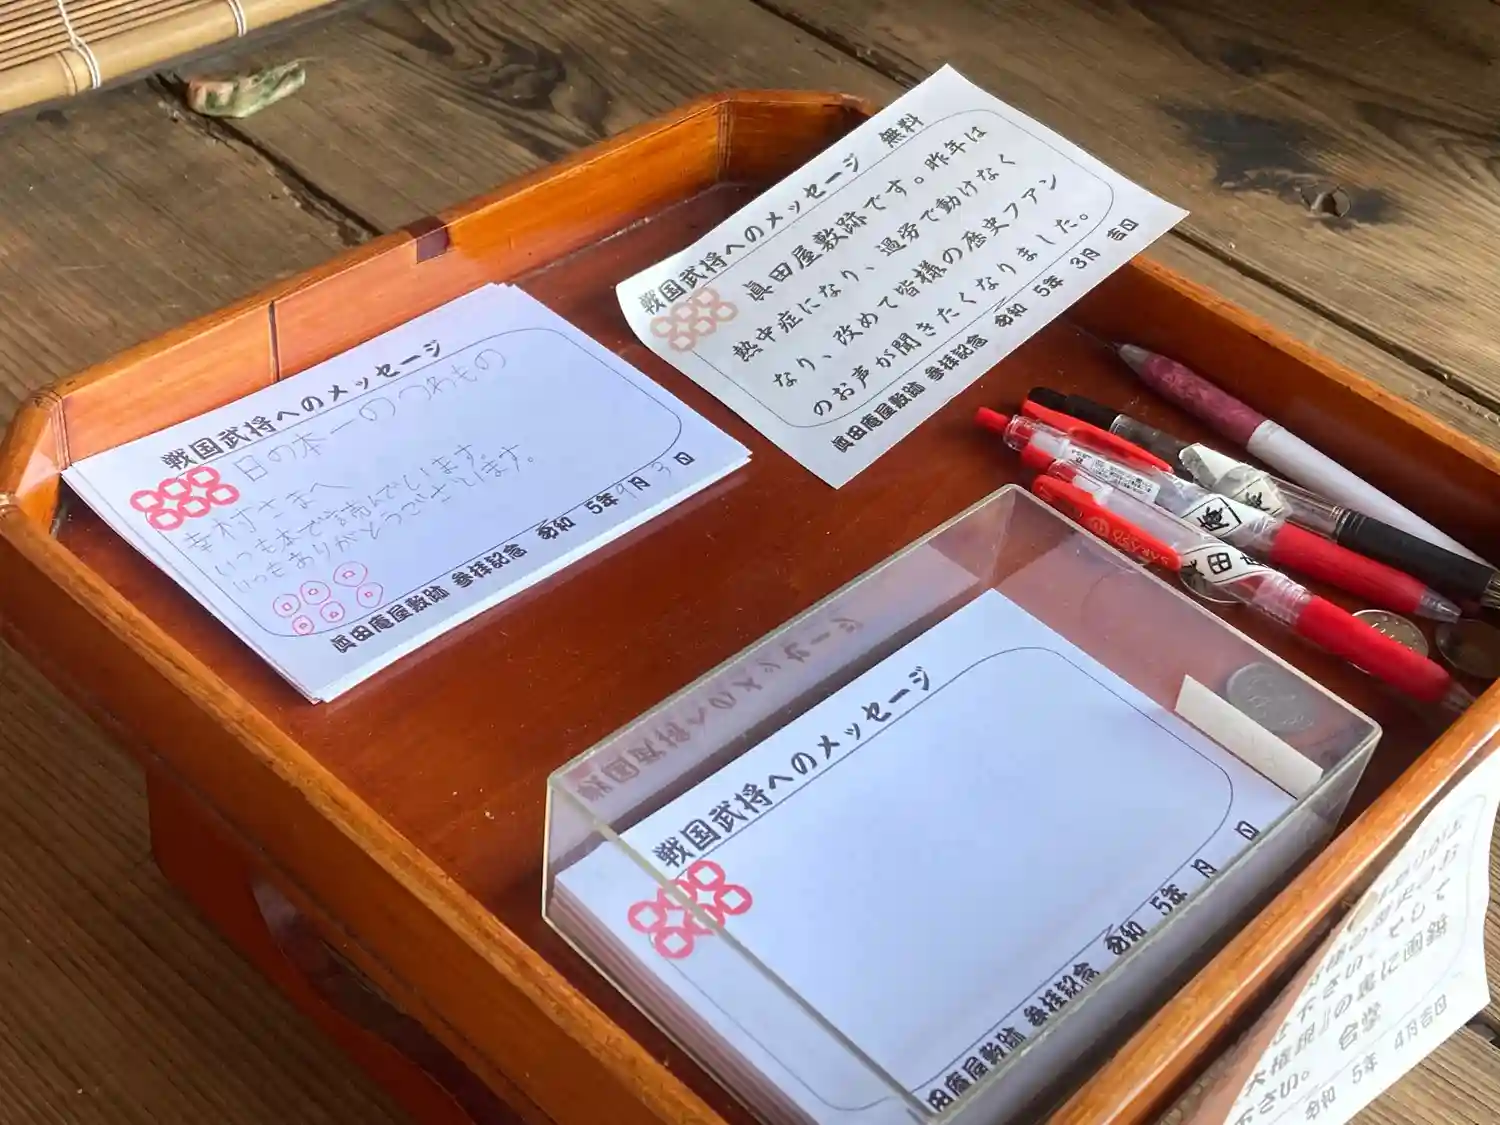 戦国武将へのメッセージ 無料
眞田屋敷跡です。昨年は
熱中症になり、過労で動けなく
なり、改めて皆様の歴史ファン
のお声が聞きたくなりました。
眞田庵屋敷跡 参拝記念 令和 5年 3月 吉日
戦国武将へのメッセージ
日の本一のつわもの
幸村さまへ
いつも本で読んでいます。
いつもありがとうございます。
眞田庵屋敷跡 参拝記念 令和 5年 9月 3日
戦国武将へのメッセージ
田庵屋敷跡 参拝記念 令和 5年 月 日
下さい。
令和 5年 4月吉日